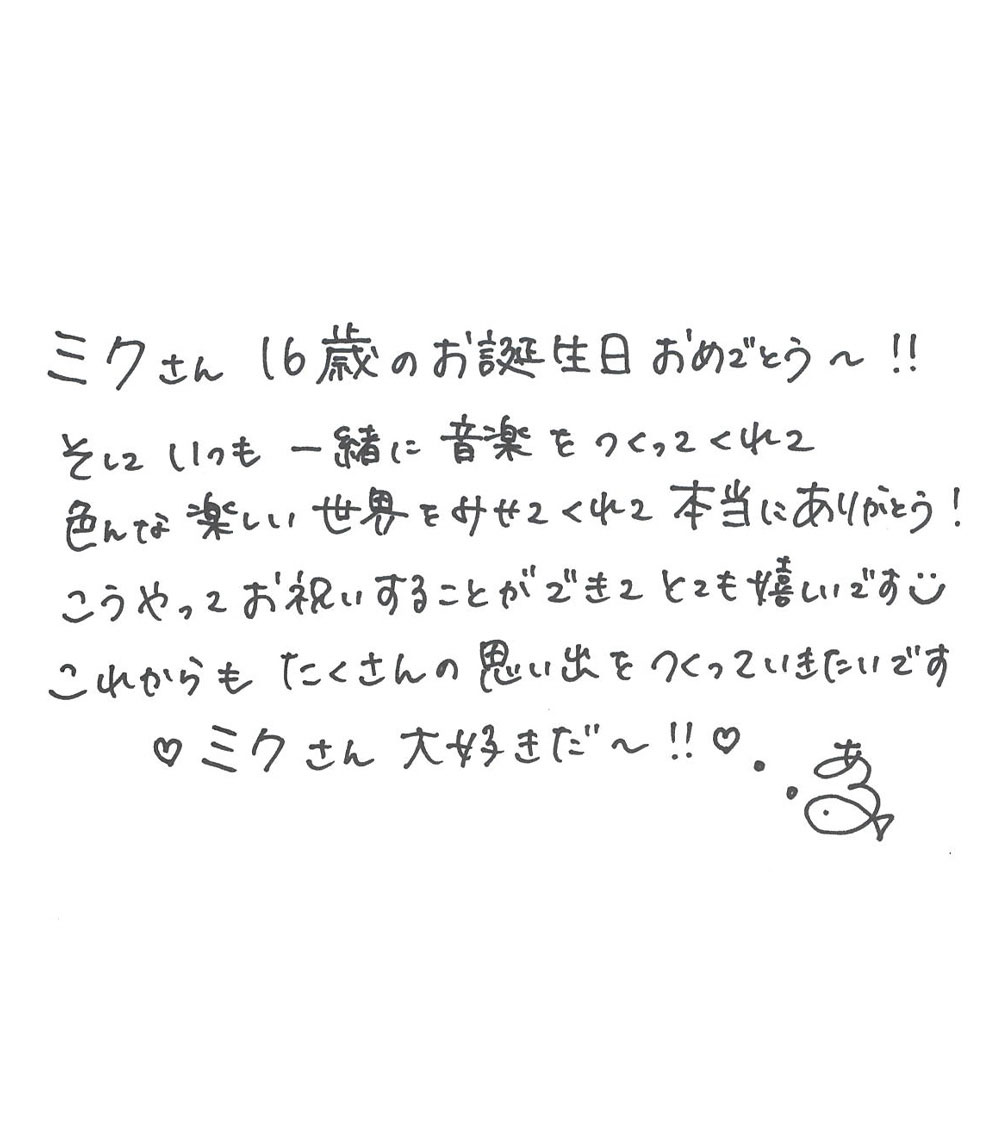 ミクさん 16歳のお誕生日おめでとう〜!!
そして いつも 一緒に 音楽を つくってくれて
色んな 楽しい 世界を みせてくれて 本当にありがとう!
こうやって お祝いすることができて とても嬉しいです
これからも たくさんの 思い出を つくっていきたいです
♡ミクさん 大好きだ〜!!♡